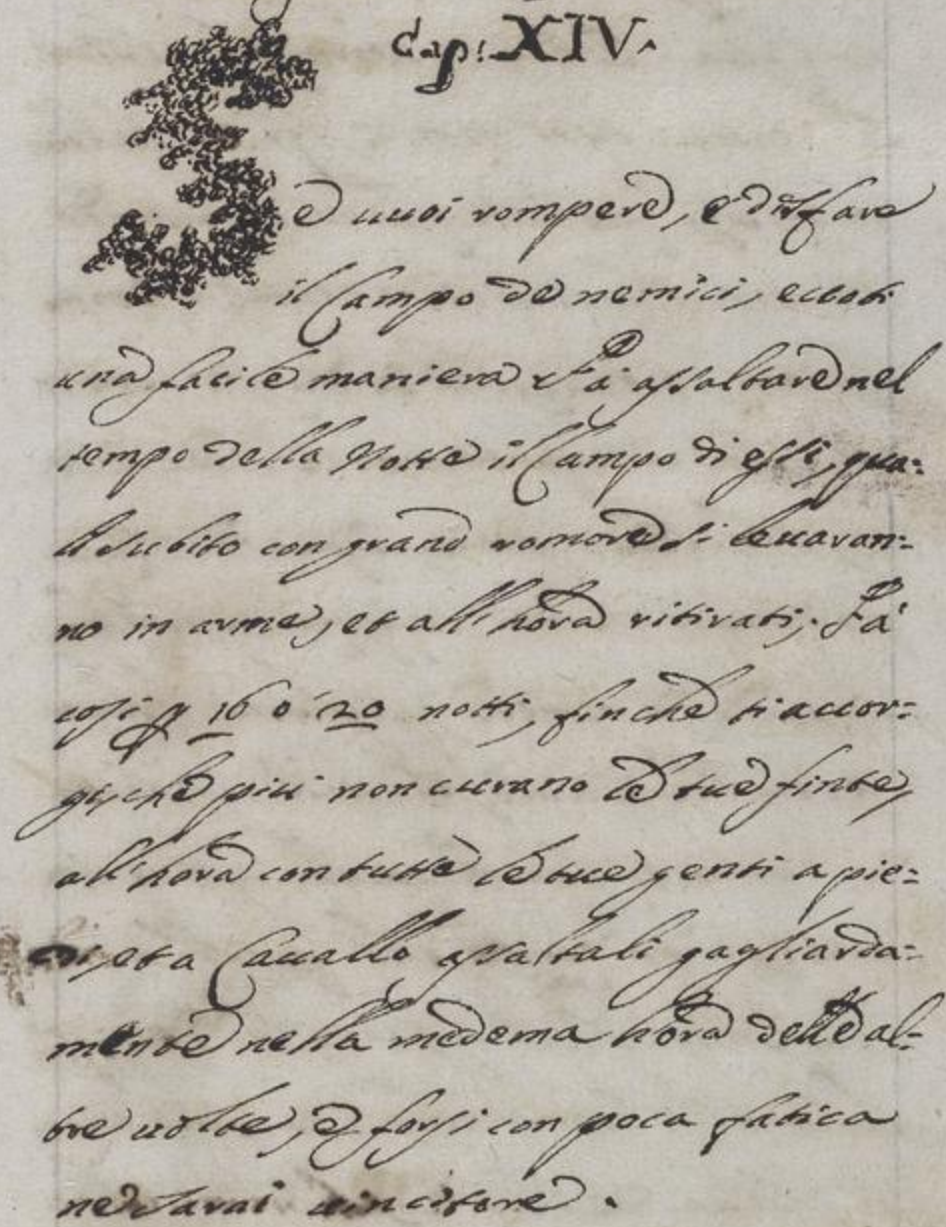 Cap: XIV.
Se uuoi rompere, e disfare
il Campo de nemici, eccoti
una facile maniera Fà assaltare nel
tempo della Notte il Campo di essi, qua=
li subito con grand romore si leuaran=
no in arme, et all'hora ritirati; Fà
cosi p 16 ò 20 notti, finche ti accor=
gi, che più non curano le tue finte,
all'hora con tutte le tue genti a pie=
di, et a Cauallo assaltali gagliarda=
mente nella medema hora delle al=
tre uolte, e forsi con poca fatica
ne sarai uincitore.